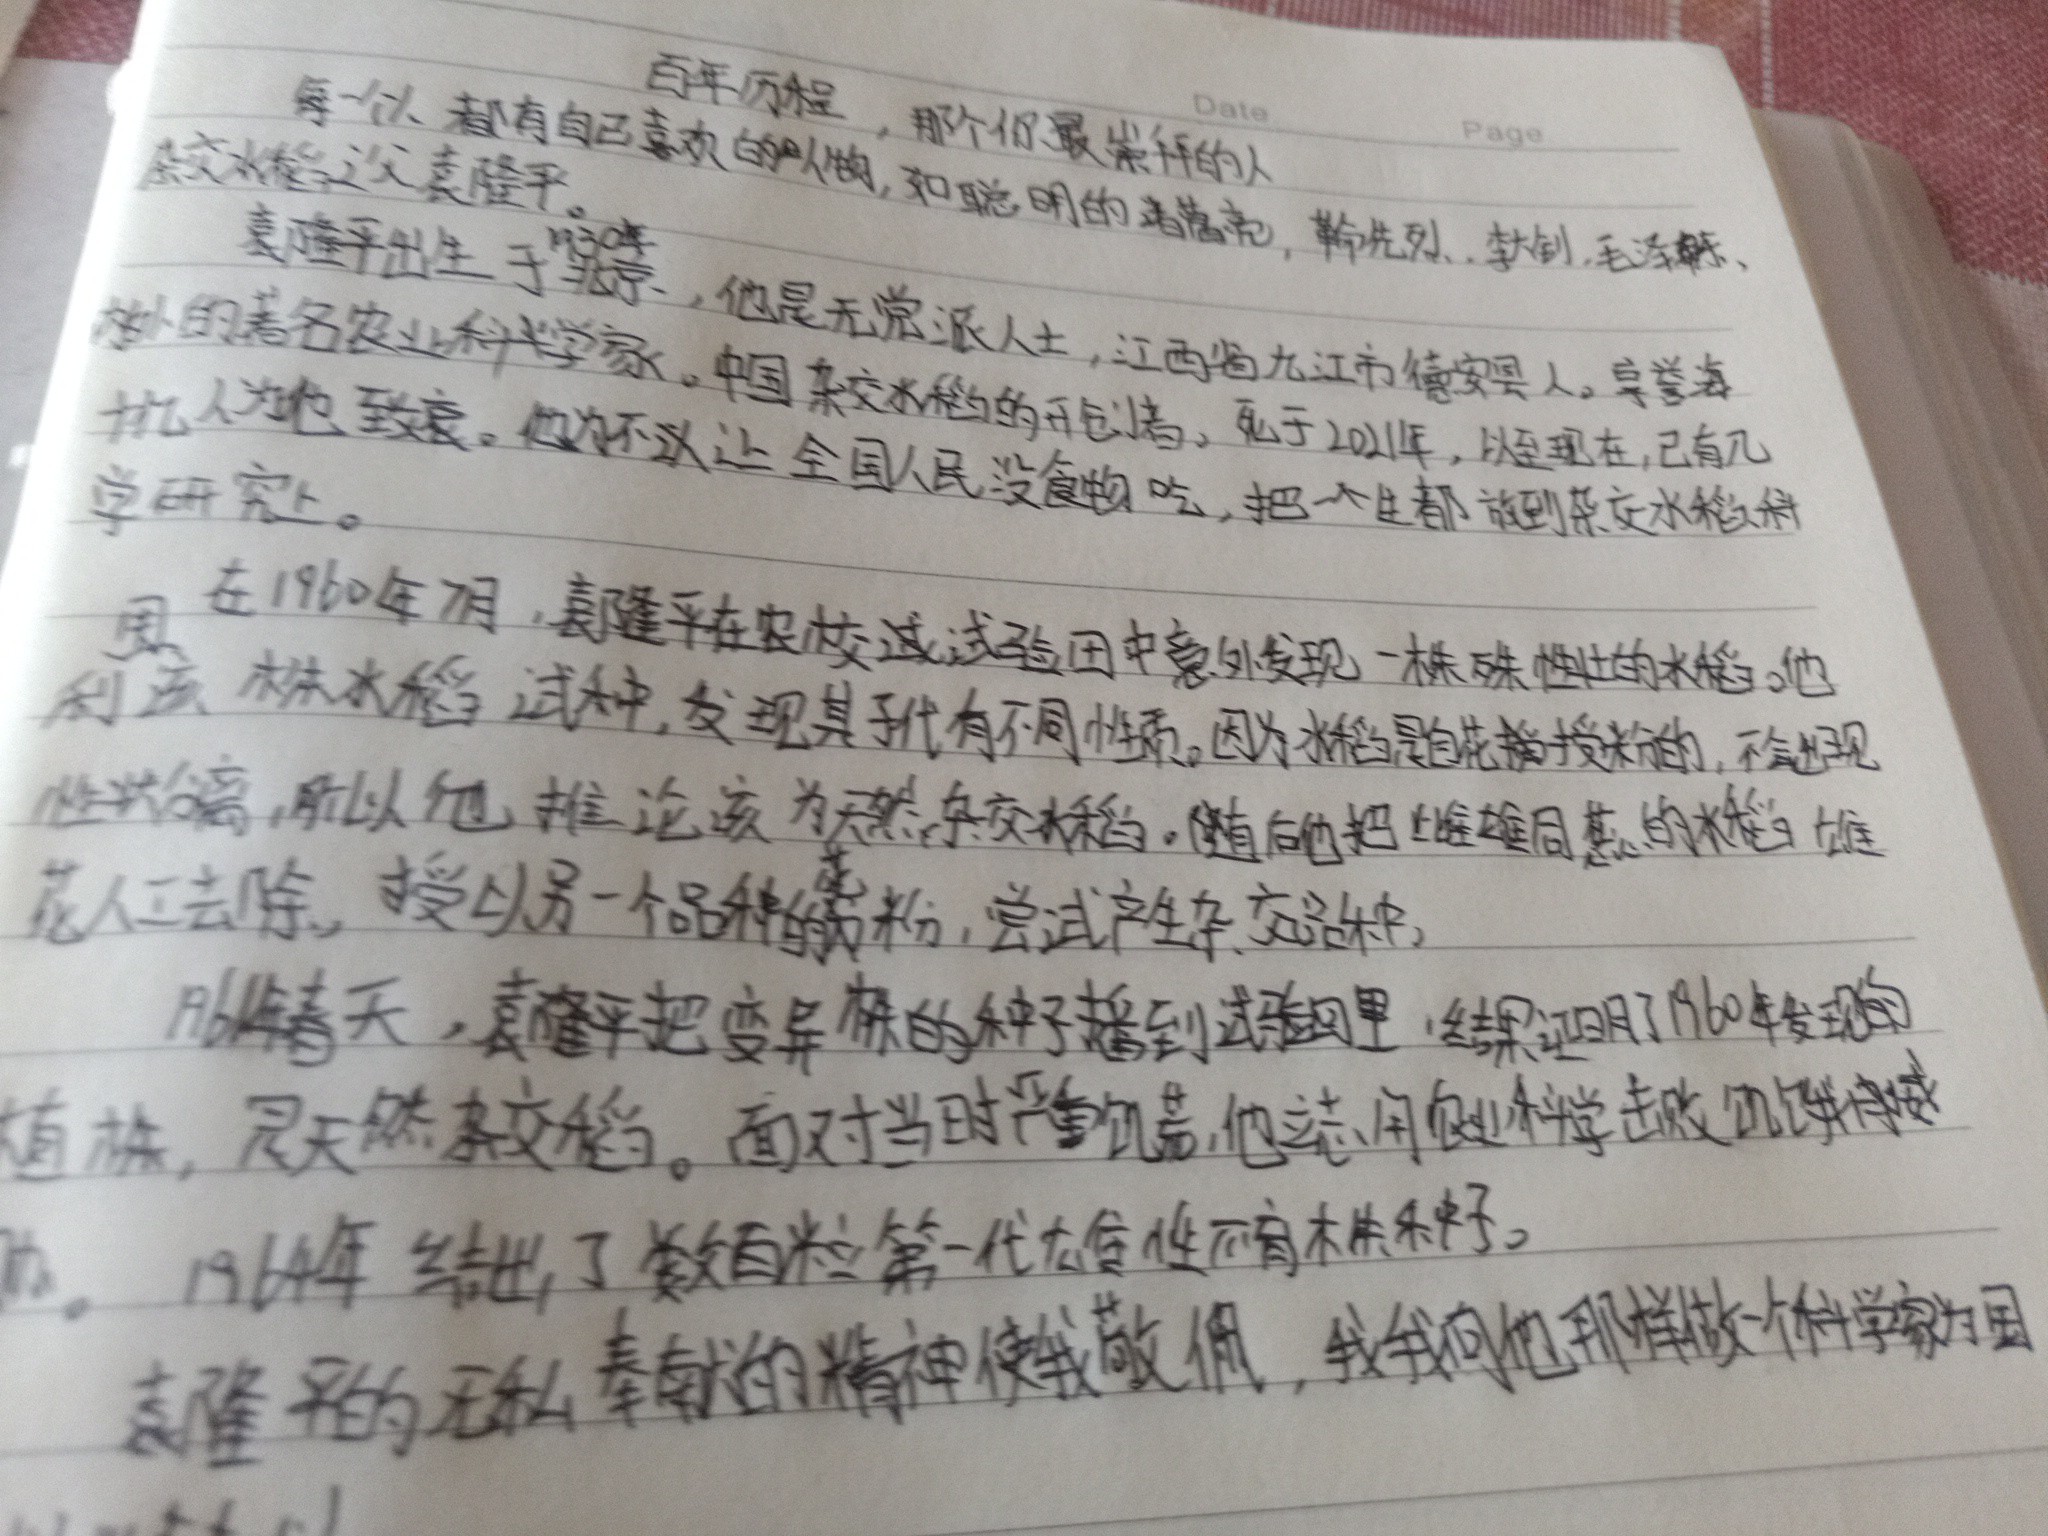 Date
Page
百年历程，那个你最崇拜的人
每一个人都有自己喜欢的人物，如聪明的诸葛亮，革命先烈、李大钊、毛泽东、
杂交水稻之父袁隆平。
1930年
袁隆平出生于北京，他是无党派人士，江西省九江市德安县人。享誉海
内外的著名农业科学家。中国杂交水稻的开创者。死于2021年，以至现在，已有几
十亿人为他致哀。他为不让全国人民没食物吃，把一生都放到杂交水稻科
学研究上。
在1960年7月，袁隆平在农校试验田中意外发现一株殊性状的水稻。他
用
利该株水稻试种，发现其子代有不同性质。因为水稻是自花授粉的，不会出现
性状分离，所以他推论该为天然杂交水稻。随后他把雌雄同蕊的水稻雄
花人工去除，授以另一个品种的花粉，尝试产生杂交品种，
1961年春天，袁隆平把变异株的种子播到试验田里，结果证明了1960年发现的
植株，是天然杂交稻。面对当时严重饥荒，他立志用农业科学击败饥饿威
胁。1964年结出了数百粒第一代雄性不育株种子。
袁隆平的无私奉献的精神使我敬佩，我向他那样做一个科学家为国